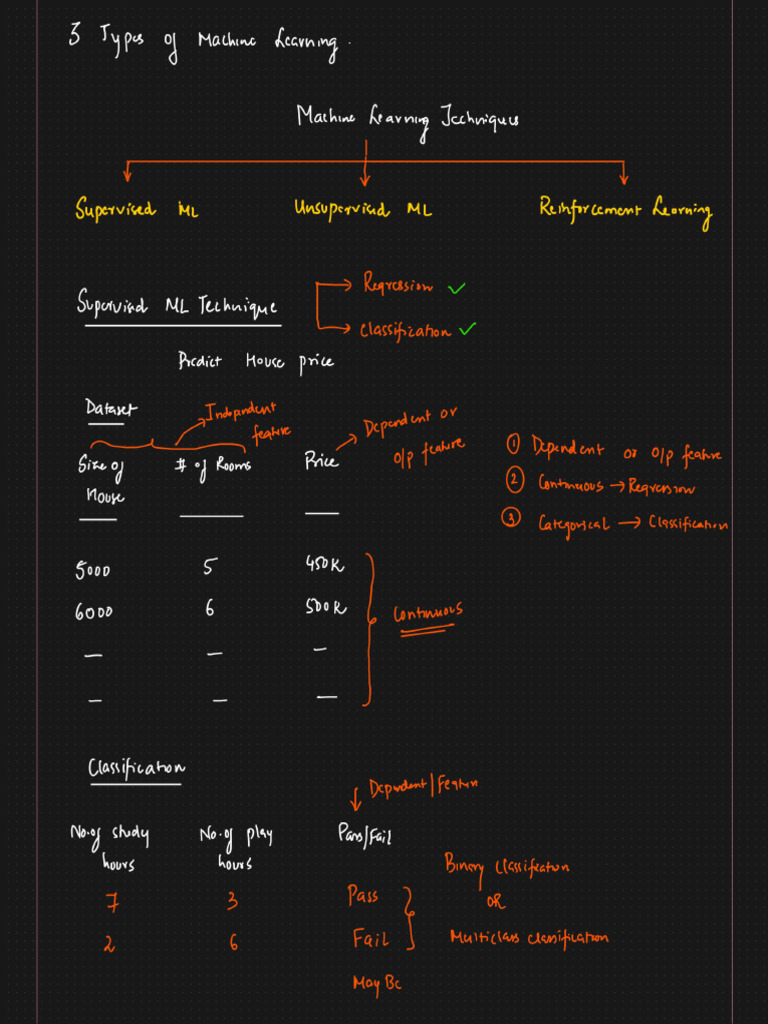 3 Types of Machine Learning.
Machine Learning Techniques
Supervised ML Unsupervised ML Reinforcement Learning
Supervised ML Technique
Regression ✓
Classification ✓
Predict House price
Dataset
Independent
feature
Dependent or
O/p feature
Size of
House
# of Rooms
Price
① Dependent or O/p feature
② Continuous → Regression
③ Categorical → Classification
5000 5 450K
6000 6 500K
Continuous
— — —
— — —
Classification
Dependent/Feature
No. of study
hours
No. of play
hours
Pass/Fail
7 3 Pass
2 6 Fail
May Be
Binary Classification
OR
Multiclass classification